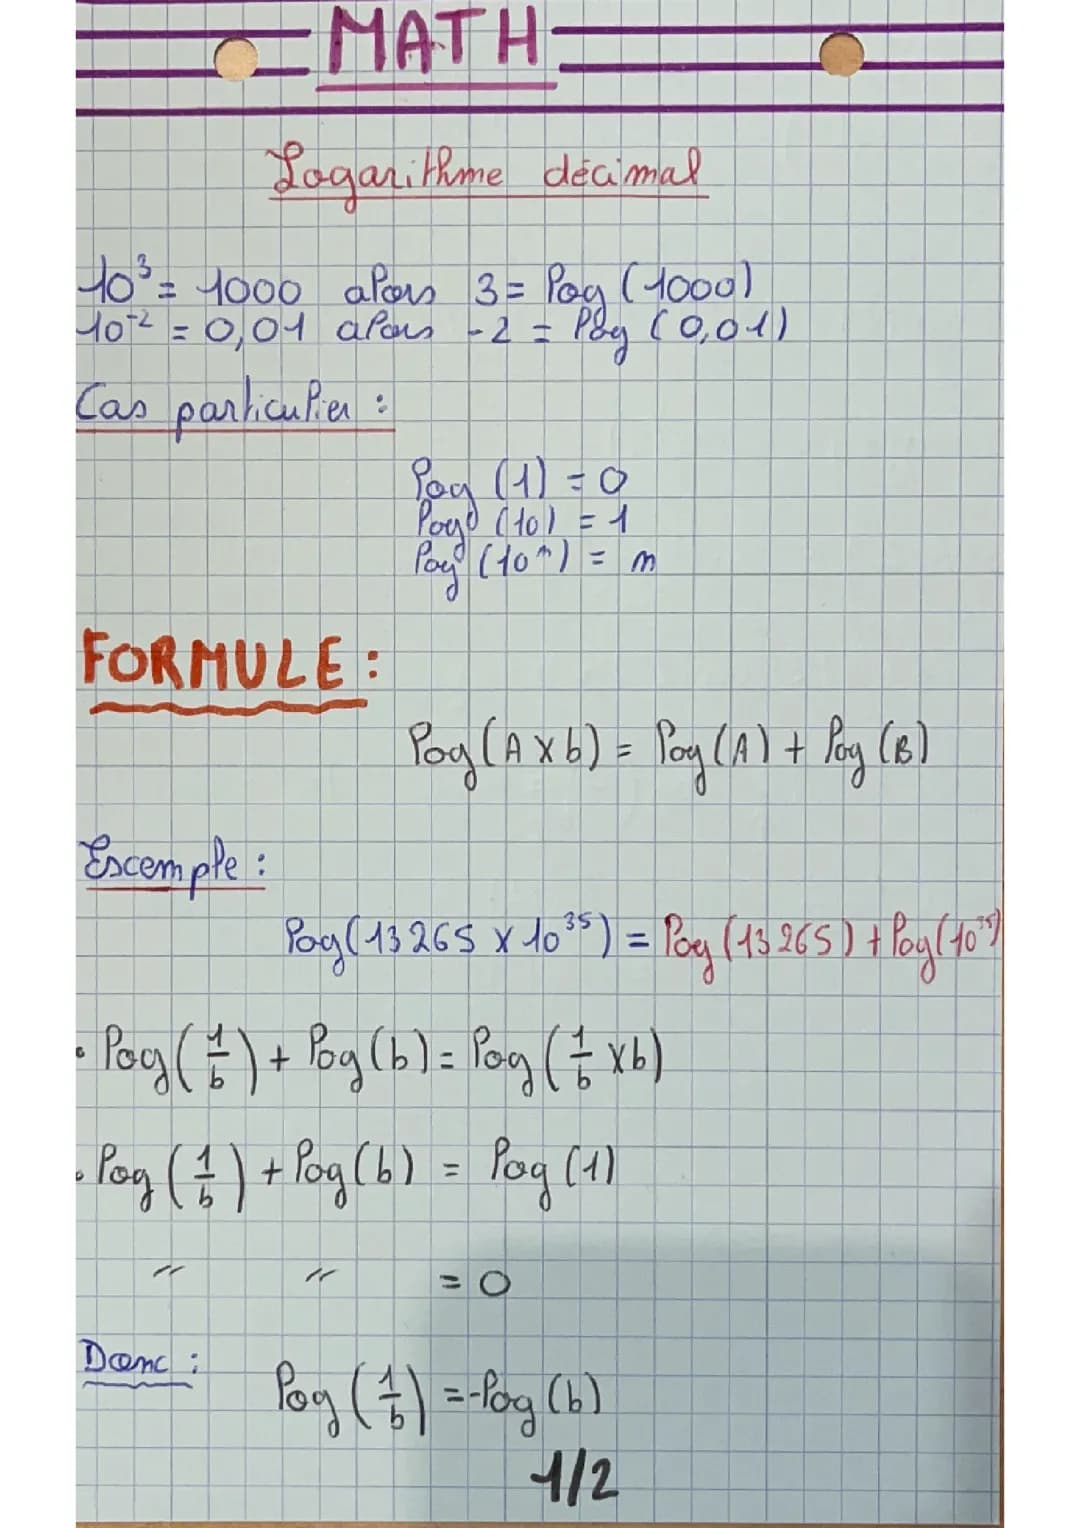 MATH
Logarithme décimal
10³ = 1000 alors 3 = log (1000)
10⁻² = 0,01 alors -2 = log (0,01)
Cas particulier :
log (1) = 0
log (10) = 1
log (10ⁿ) = n
FORMULE :
log (A x b) = log (A) + log (B)
Exemple :
log (13265 x 10³⁵) = log (13265) + log (10³⁵)
• log (1/b) + log (b) = log (1/b x b)
• log (1/b) + log (b) = log (1)
" " = 0
Donc :
log (1/b) = -log (b)
1/2